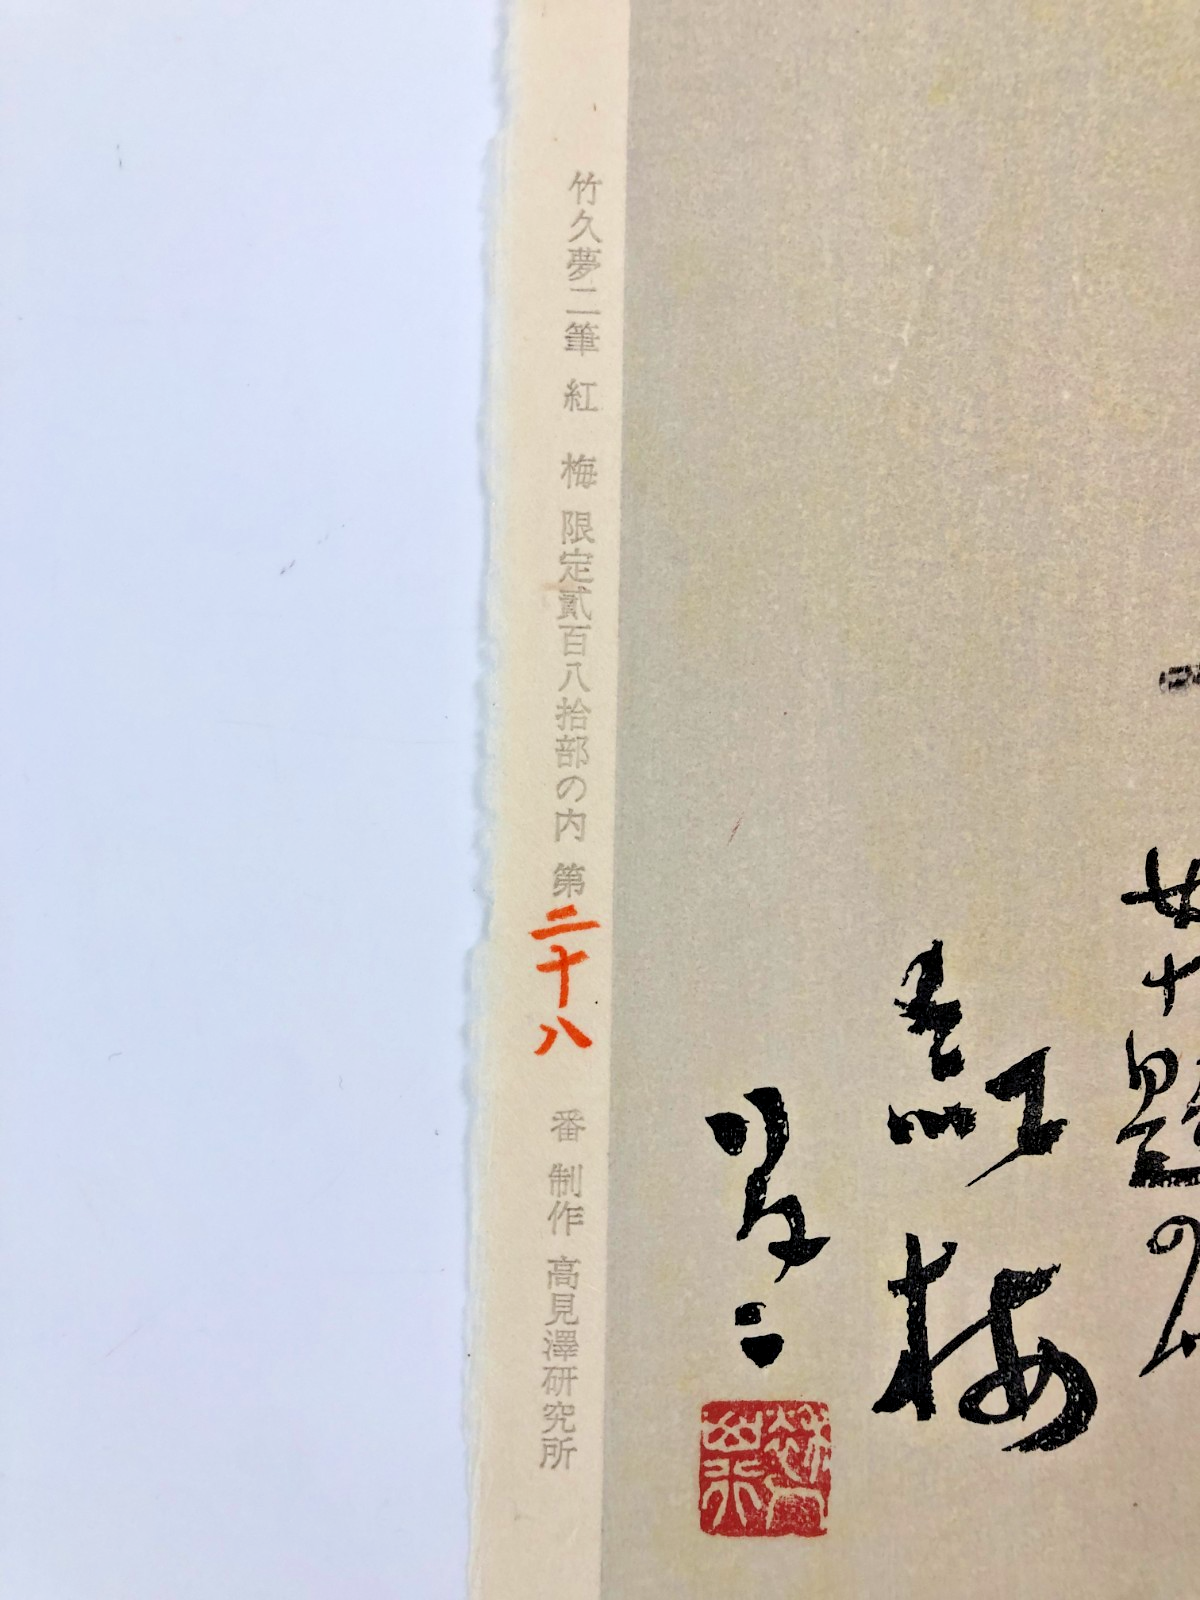 女十題の内
紅梅
夢二
竹久夢二筆 紅 梅 限定貳百八拾部の内 第二十八 番 制作 高見澤研究所